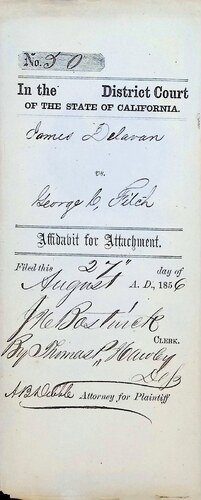 No. 50
In the District Court
OF THE STATE OF CALIFORNIA.
James Delavan
vs.
George C, Fitch
Affidabit for Attachment.
Filed this 27" day of
August A. D., 1856
J. H. Bostwick
CLERK.
By Thomas P. Hawley
Dep
Attorney for Plaintiff